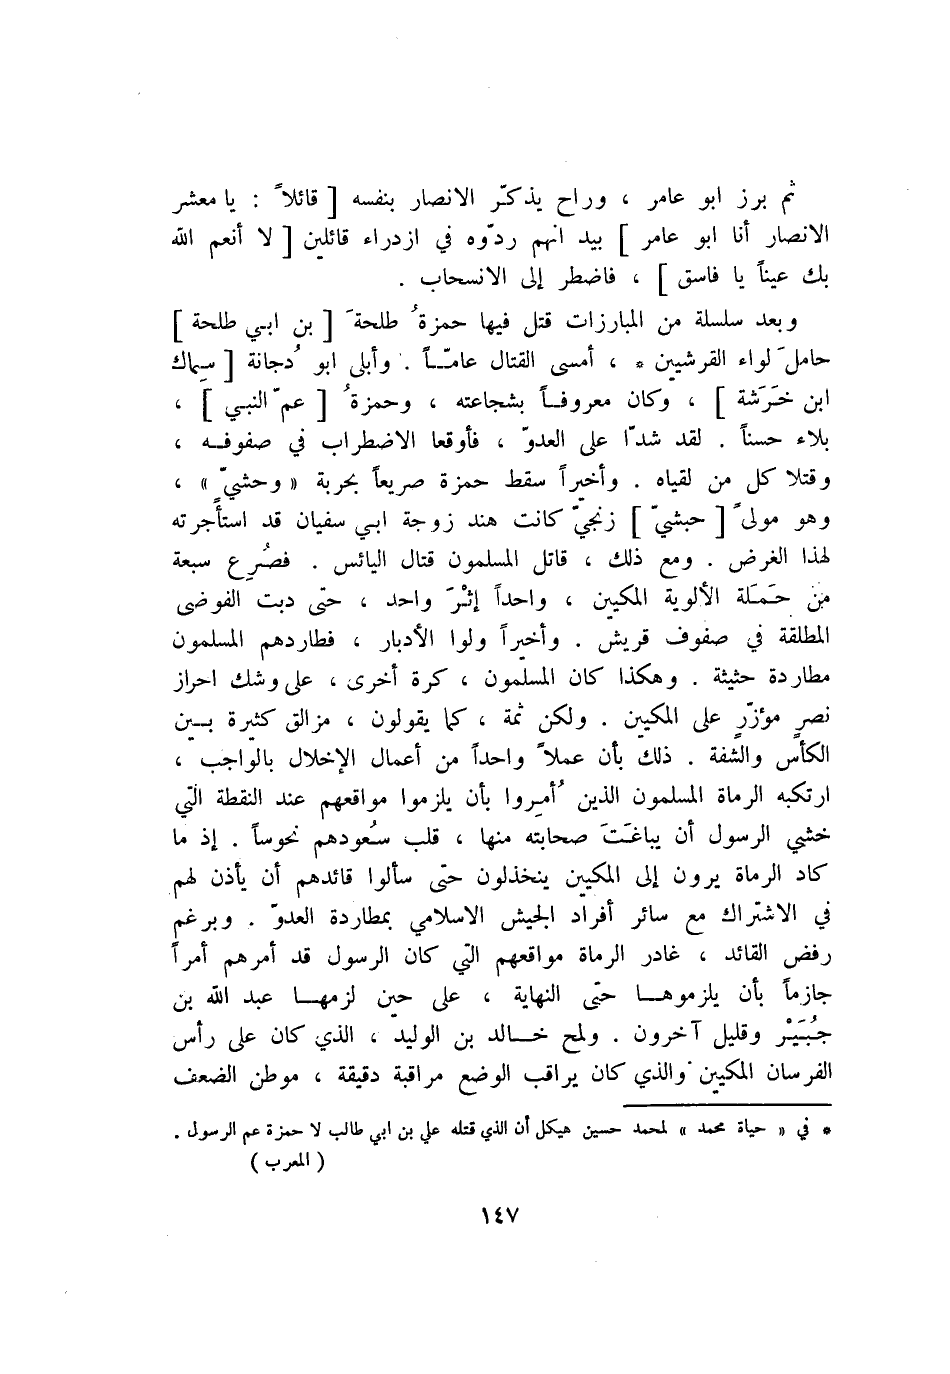 ثم برز ابو عامر ، وراح يذكّر الانصار بنفسه [ قائلاً : يا معشر
الانصار أنا ابو عامر ] بيد انهم ردّوه في ازدراء قائلين [ لا أنعم الله
بك عيناً يا فاسق ] ، فاضطر إلى الانسحاب .
وبعد سلسلة من المبارزات قتل فيها حمزةُ طلحةَ [ بن ابي طلحة ]
حاملَ لواء القرشيين * ، أمسى القتال عامّـاً . وأبلى ابو دُجانة [ سِماك
ابن خَرَشة ] ، وكان معروفـاً بشجاعته ، وحمزةُ [ عم النبي ] ،
بلاء حسناً . لقد شدّا على العدوّ ، فأوقعا الاضطراب في صفوفـه ،
وقتلا كل من لقياه . وأخيراً سقط حمزة صريعاً بحربة « وحشيّ » ،
وهو مولىً [ حبشيّ ] زنجيّ كانت هند زوجة ابي سفيان قد استأجرته
لهذا الغرض . ومع ذلك ، قاتل المسلمون قتال اليائس . فصُرِع سبعة
من حَمَلة الألوية المكيين ، واحداً إثْرَ واحد ، حتى دبت الفوضى
المطلقة في صفوف قريش . وأخيراً ولوا الأدبار ، فطاردهم المسلمون
مطاردة حثيثة . وهكذا كان المسلمون ، كرة أخرى ، على وشك احراز
نصرٍ مؤزّرٍ على المكيين . ولكن ثمة ، كما يقولون ، مزالق كثيرة بـين
الكأس والشفة . ذلك بأن عملاً واحداً من أعمال الإخلال بالواجب ،
ارتكبه الرماة المسلمون الذين أُمِروا بأن يلزموا مواقعهم عند النقطة التي
خشي الرسول أن يباغَتَ صحابته منها ، قلب سُعودهم نحوساً . إذ ما
كاد الرماة يرون إلى المكيين ينخذلون حتى سألوا قائدهم أن يأذن لهم
في الاشتراك مع سائر أفراد الجيش الاسلامي بمطاردة العدوّ . وبرغم
رفض القائد ، غادر الرماة مواقعهم التي كان الرسول قد أمرهم أمراً
جازماً بأن يلزموهـا حتى النهاية ، على حين لزمهـا عبد الله بن
جُبَيْر وقليل آخرون . ولمح خـالد بن الوليد ، الذي كان على رأس
الفرسان المكيين والذي كان يراقب الوضع مراقبة دقيقة ، موطن الضعف
* في « حياة محمد » لمحمد حسين هيكل أن الذي قتله علي بن ابي طالب لا حمزة عم الرسول .
( المعرب )
١٤٧